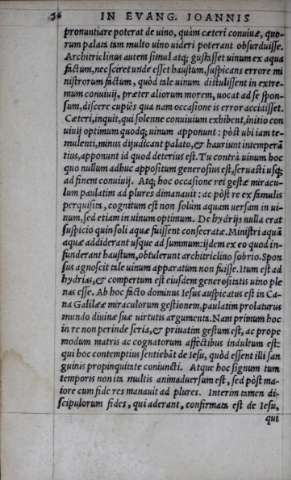 36 IN EVANG. IOANNIS
pronuntiare poterat de uino, quàm cæteri conuiuæ, quo-
rum palata iam multo uino uideri poterant obsurduisse.
Architriclinus autem simul atq; gustasset uinum ex aqua
factum, nec sciret unde esset haustum, suspicans errore mi
nistrorum factum, quòd tale uinum distulissent in extre-
mum conuiuij, præter aliorum morem, uocat ad se spon-
sum, discere cupiens qua nam occasione is error accidisset.
Cæteri, inquit, qui solenne conuiuium exhibent, initio con
uiuij optimum quodq; uinum apponunt: pòst ubi iam te-
mulenti, minus dijudicant palato, & hauriunt intemperā
tius, apponunt id quod deterius est. Tu contrà uinum hoc
quo nullum adhuc appositum generosius est, seruasti usq;
ad finem conuiuij. Atq; hac occasione rei gestæ miracu-
lum paulatim ad plures dimanauit: ac pòst re ex famulis
perquisita, cognitum est non solum aquam uersam in ui-
num, sed etiam in uinum optimum. De hydrijs nulla erat
suspicio quin soli aquæ fuissent consecratæ. Ministri aquā
aquæ addiderant usque ad summum: ijdem ex eo quod in-
funderant haustum, obtulerunt architriclino sobrio. Spon
sus agnoscit tale uinum apparatum non fuisse. Itum est ad
hydrias, & compertum est eiusdem generositatis uino ple
nas esse. Ab hoc facto dominus Iesus auspicatus est in Ca-
na Galilææ miraculorum gestionem, paulatim prolaturus
mundo diuinæ suæ uirtutis argumenta. Nam primum hoc
in re non perinde seria, & priuatim gestum est, ac prope
modum matris ac cognatorum affectibus indultum est:
qui hoc contemptius sentiebāt de Iesu, quòd essent illi san
guinis propinquitate coniuncti. Atque hoc signum tum
temporis non ita multis animaduersum est, sed pòst ma-
iore cum fide res manauit ad plures. Interim tamen di-
scipulorum fides, qui aderant, confirmata est de Iesu,
qui